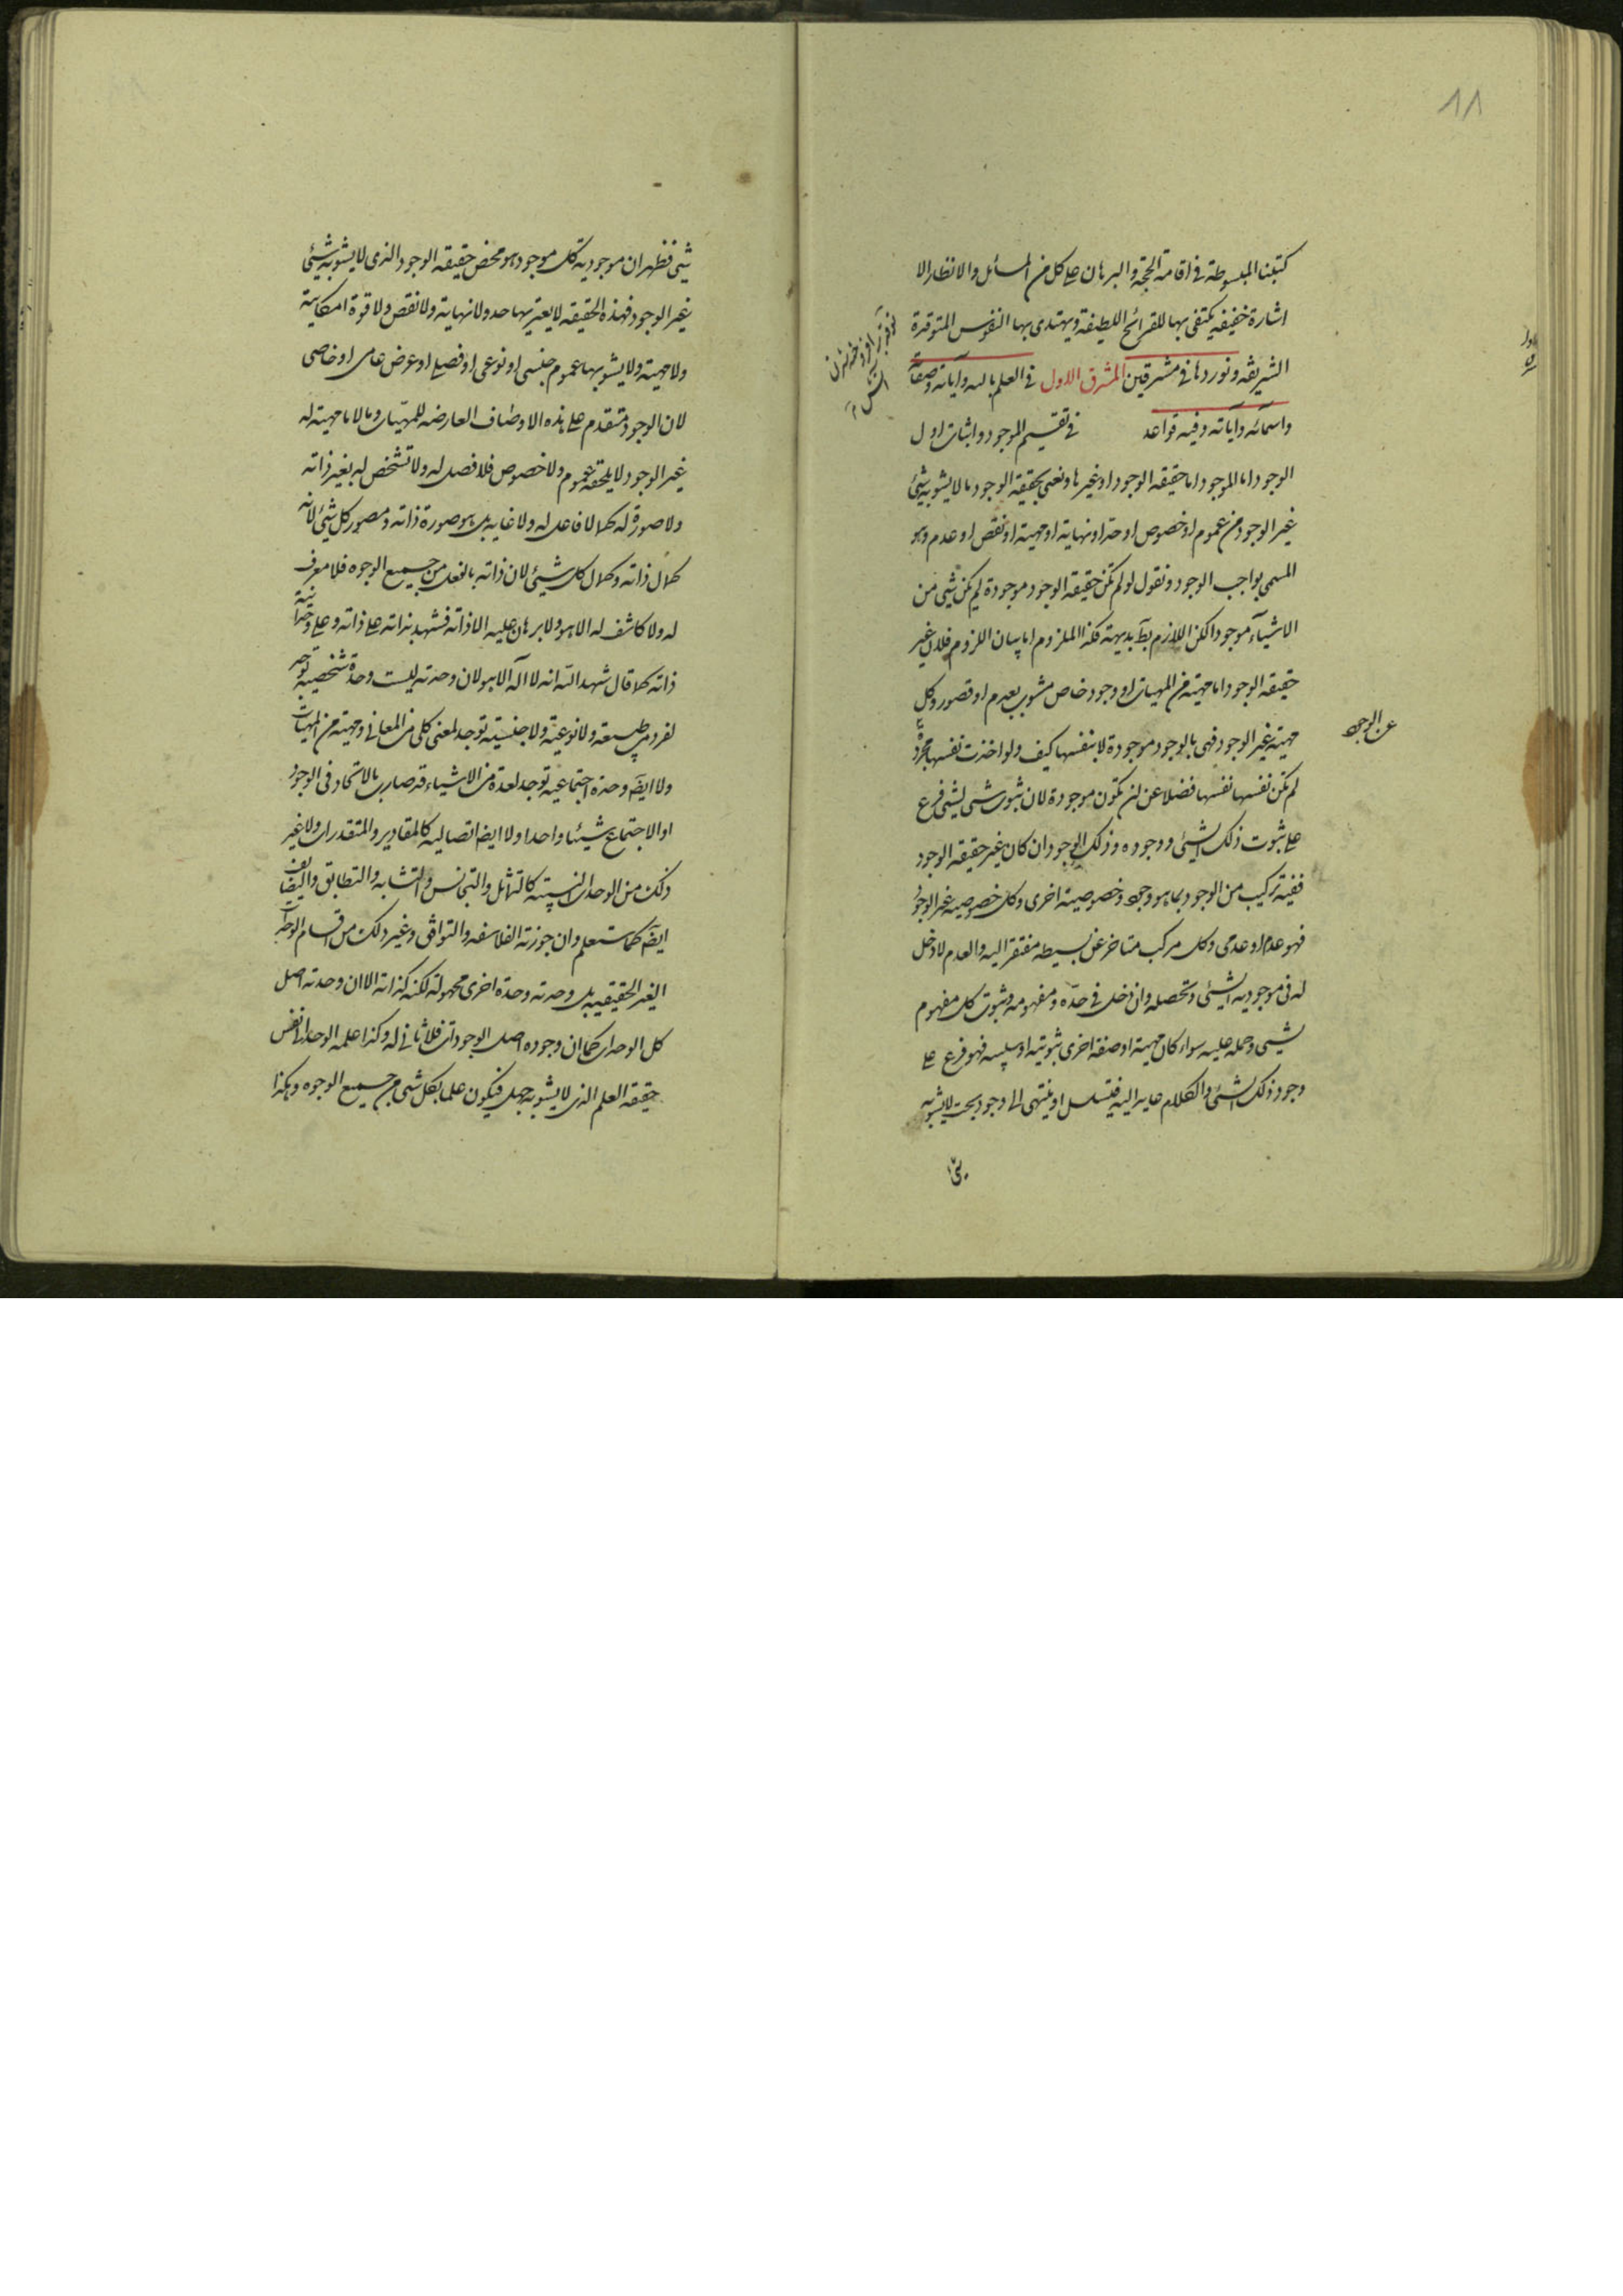 ١٨
كتبنا المبسوطة فى اقامة الحجة والبرهان على كل من المسائل والانظار الا
اشارة خفيفه يكتفى بها للقرائح اللطيفة ويهتدى بها النفوس المتوقدة
الشريفه ونوردها فى مشرقين المشرق الاول فى العلم بالله وآياته وصفاته
واسمائه وآياته وفيه قواعد فى تقسيم الموجود واثبات اول
الوجود اما الموجود اما حقيقه الوجود او غيرها ونعنى بحقيقه الوجود ما لا يشوبه شئ
غير الوجود من عموم او خصوص او حد او نهاية او مهية او نقص او عدم وهو
المسمى بواجب الوجود ونقول لو لم تكن حقيقه الوجود موجودة لم يكن شئ من
الاشيآء موجودا لكن اللازم بط بديهة فكذا الملزوم اما بيان اللزوم فلان غير
حقيقه الوجود اما مهية من المهيات او وجود خاص مشوب بعدم او قصور وكل
مهية غير الوجود فهى بالوجود موجودة لا بنفسها كيف ولو اخذت نفسها مجردة
عن الوجود
لم تكن نفسها نفسها فضلا عن ان تكون موجودة لان ثبوت شئ لشئ فرع
على ثبوت ذلك الشئ ووجوده وذلك الوجود ان كان غير حقيقه الوجود
ففيه تركيب من الوجود بما هو وجود وخصوصية اخرى وكل خصوصيه غير الوجود
فهو عدم او عدمى وكل مركب متاخر عن بسيطه مفتقر اليه والعدم لا دخل
له فى موجودية الشئ وتحصله وان دخل فى حده ومفهومه وثبوت كل مفهوم
لشئ وحمله عليه سواء كان مهية او صفة اخرى ثبوتيه او سلبيه فهو فرع على
وجود ذلك الشئ والكلام عايد اليه فيتسلسل او ينتهى الى وجود بحت لا يشوبه
شئ فظهر ان موجودية كل موجود هو محض حقيقه الوجود الذى لا يشوبه شئ
غير الوجود فهذه الحقيقه لا يعتريها حد ولا نهاية ولا نقص ولا قوة امكانية
ولا مهية ولا يشوبها عموم جنسى او نوعى او فصلى او عرض عامى او خاصى
لان الوجود متقدم على هذه الاوصاف العارضه للمهيات وما لا مهية له
غير الوجود لا يلحقه عموم ولا خصوص فلا فصل له ولا تشخص له بغير ذاته
ولا صورة له كما لا فاعل له ولا غايه بل هو صورة ذاته ومصور كل شئ لانه
كمال ذاته وكمال كل شئ لان ذاته بالفعل من جميع الوجوه فلا معرف
له ولا كاشف له الا هو ولا برهان عليه الا ذاته فشهد بذاته على ذاته وعلى وحدانية
ذاته كما قال شهد الله انه لا آله الا هو لان وحدته ليست وحدة شخصية توجد
لفرد من طبيعة ولا نوعية ولا جنسية توجد لمعنى كلى من المعانى ومهية من المهيات
ولا ايضا وحدة اجتماعية توجد لعدة من الاشياء قد صارت بالاتحاد فى الوجود
او الاجتماع شيئا واحدا ولا ايضا اتصالية كالمقادير والمتقدرات ولا غير
ذلك من الوحدات النسبية كالتماثل والتجانس والتشابه والتطابق والتضايف
ايضا كما ستعلم وان جوزته الفلاسفه والتوافق وغير ذلك من اقسام الوحدات
الغير الحقيقيه بل وحدته وحدة اخرى مجهولة لكنه كذاته الا ان وحدته اصل
كل الوحدات كما ان وجوده اصل الوجودات فلا ثانى له وكذا علمه الوحدانى نفس
حقيقه العلم الذى لا يشوبه جهل فيكون علما بكل شئ من جميع الوجوه وهكذا